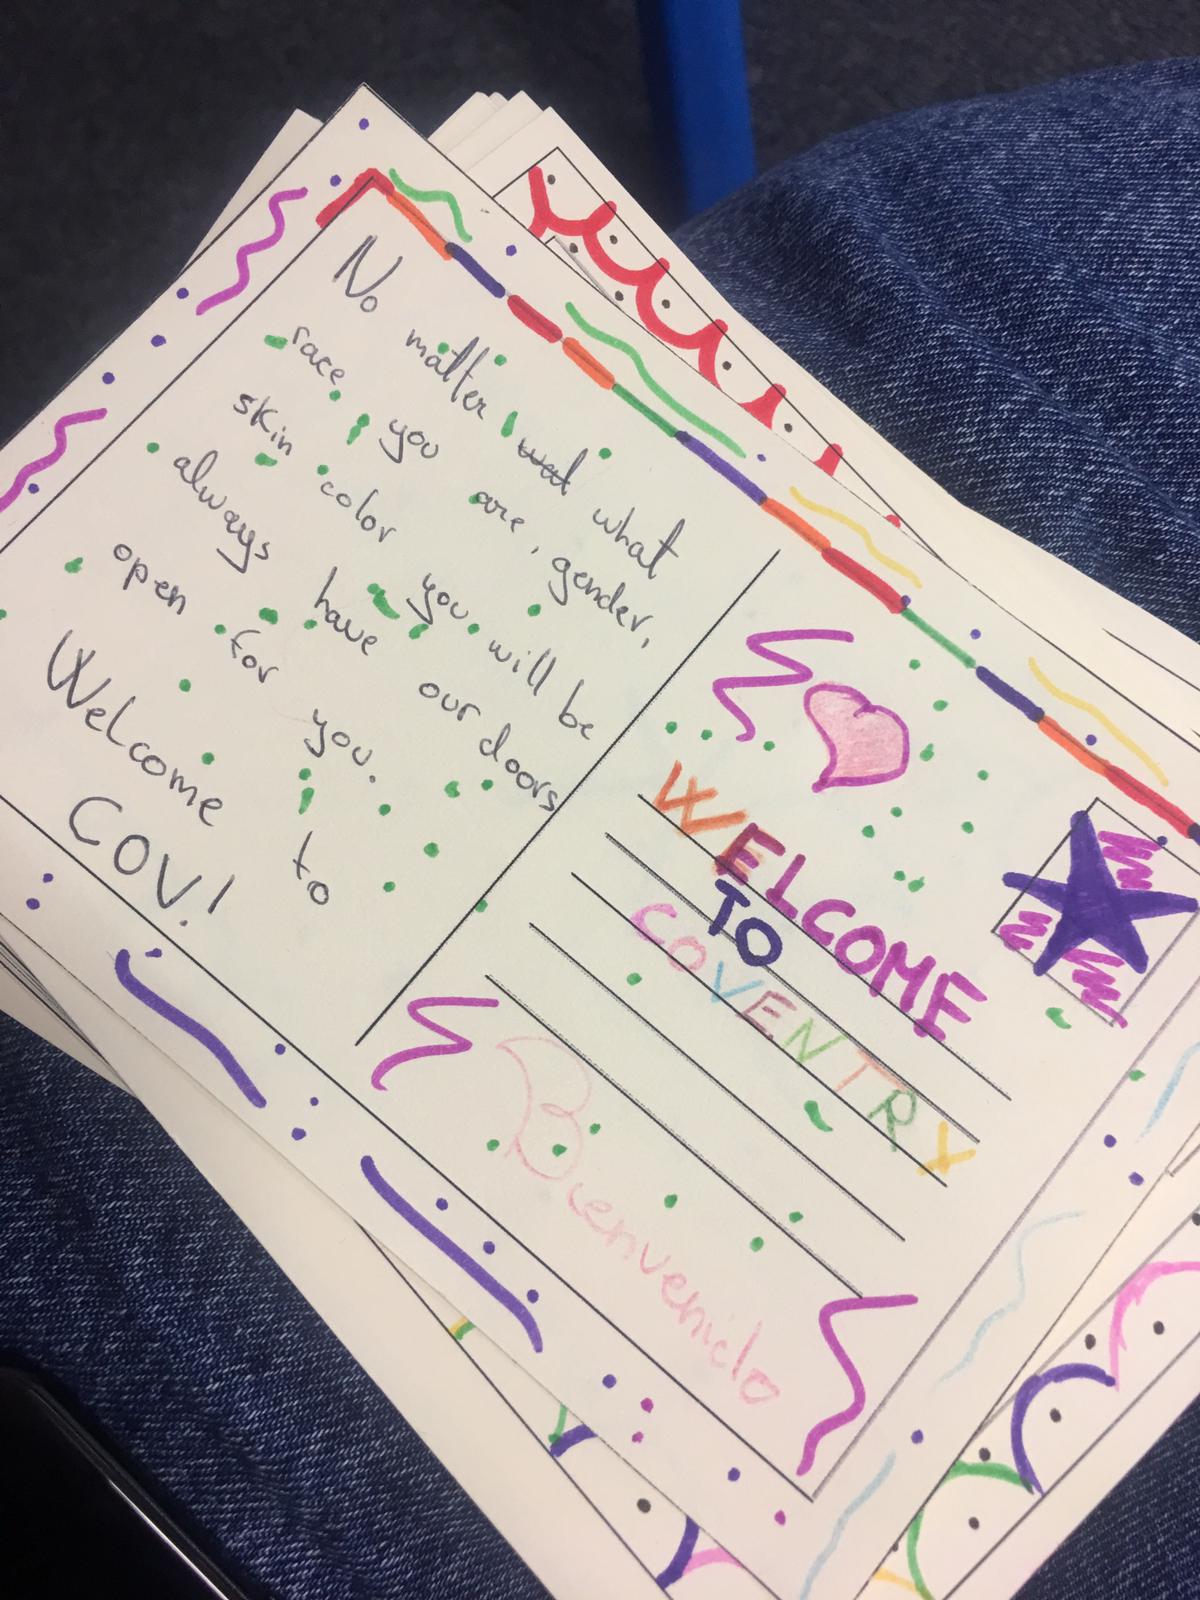 No matter what
race you are, gender,
skin color you will be
always have our doors
open for you.
Welcome to
COV!
WELCOME
TO
COVENTRY
Bienvenido